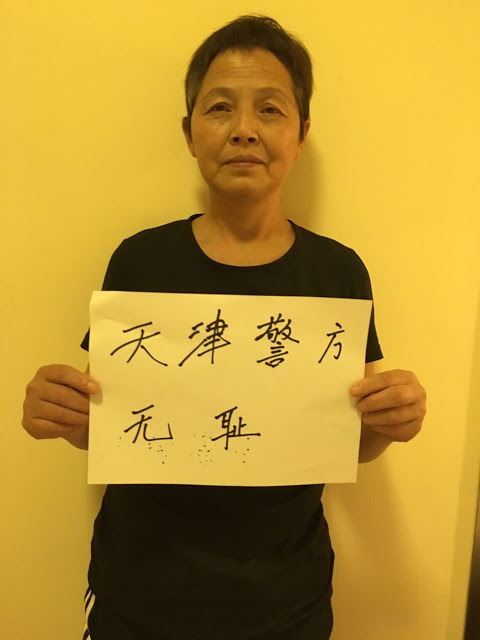 天津警方
无耻